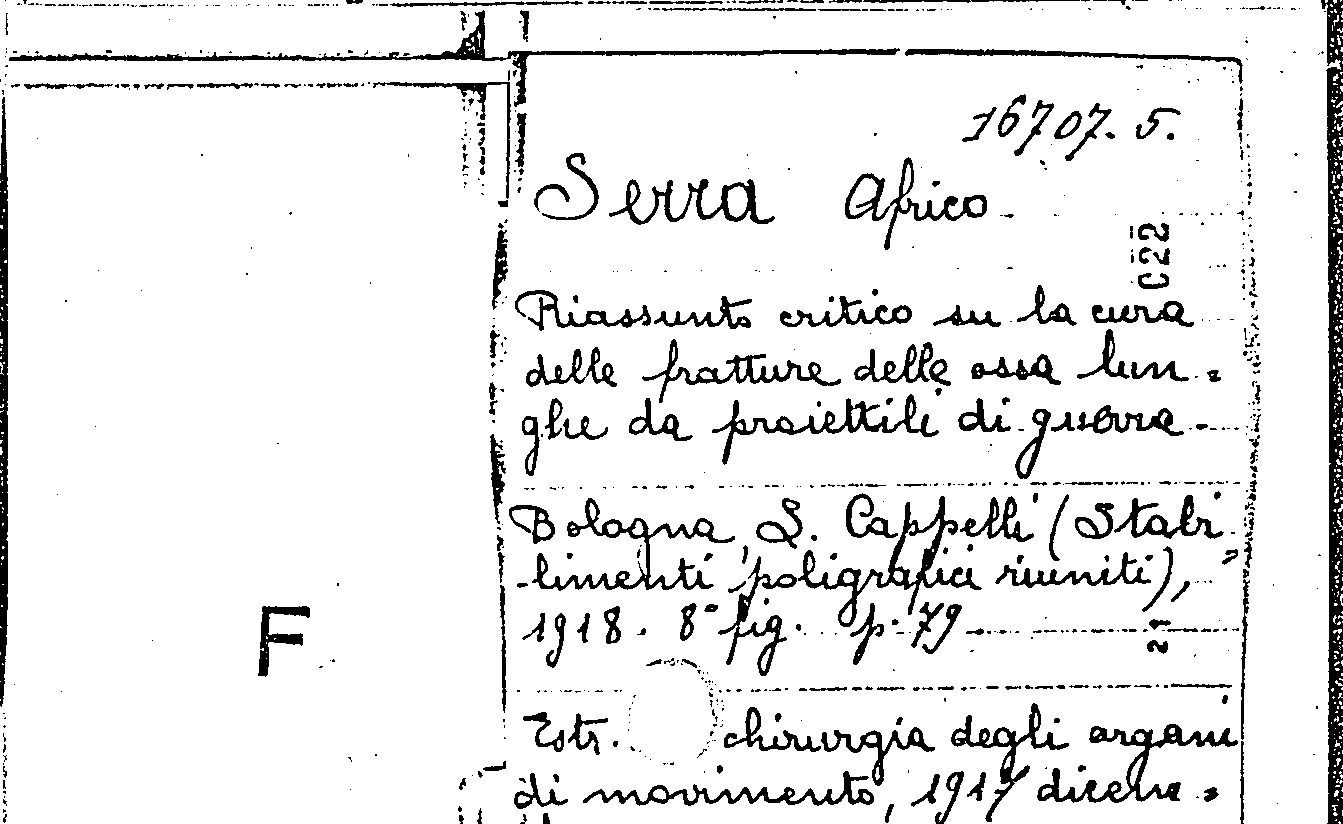 16707. 5.
Serra Africo
C22
Riassunto critico su la cura
delle fratture delle ossa lun=
ghe da proiettili di guerra.
Bologna, L. Cappelli (Stabi
limenti poligrafici riuniti),
1918. 8° fig. p. 79
21
F
Estr. chirurgia degli organi
di movimento, 1917 dicem=